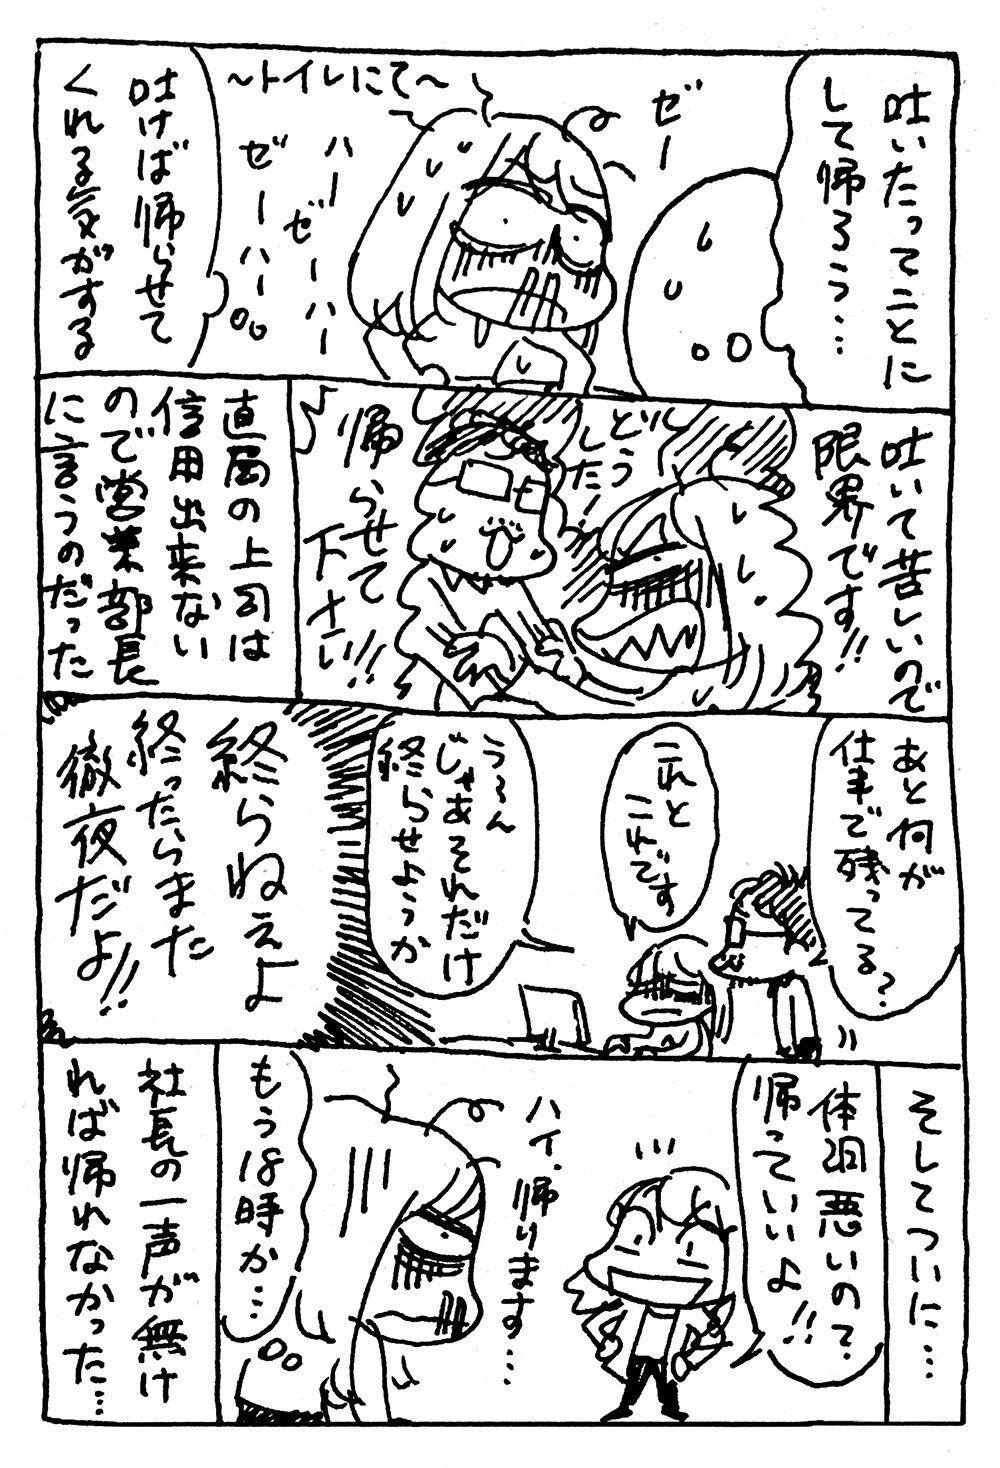 吐いたってことに
して帰ろう…
ゼー
ハー
ゼーハー
ゼーハー
〜トイレにて〜
吐けば帰らせて
くれる気がする
吐いて苦しいので
限界です!!
どう
した!
帰らせて
下さい!!
直属の上司は
信用出来ない
ので営業部長
に言うのだった
あと何が
仕事で残ってる?
これと
これです
う〜ん
じゃあそれだけ
終らせようか
終らねぇよ
終ったらまた
徹夜だよ!!
そしてついに…
体調悪いので
帰っていいよ!!
ハイ、帰ります…
もう18時か…
社長の一声が無け
れば帰れなかった…